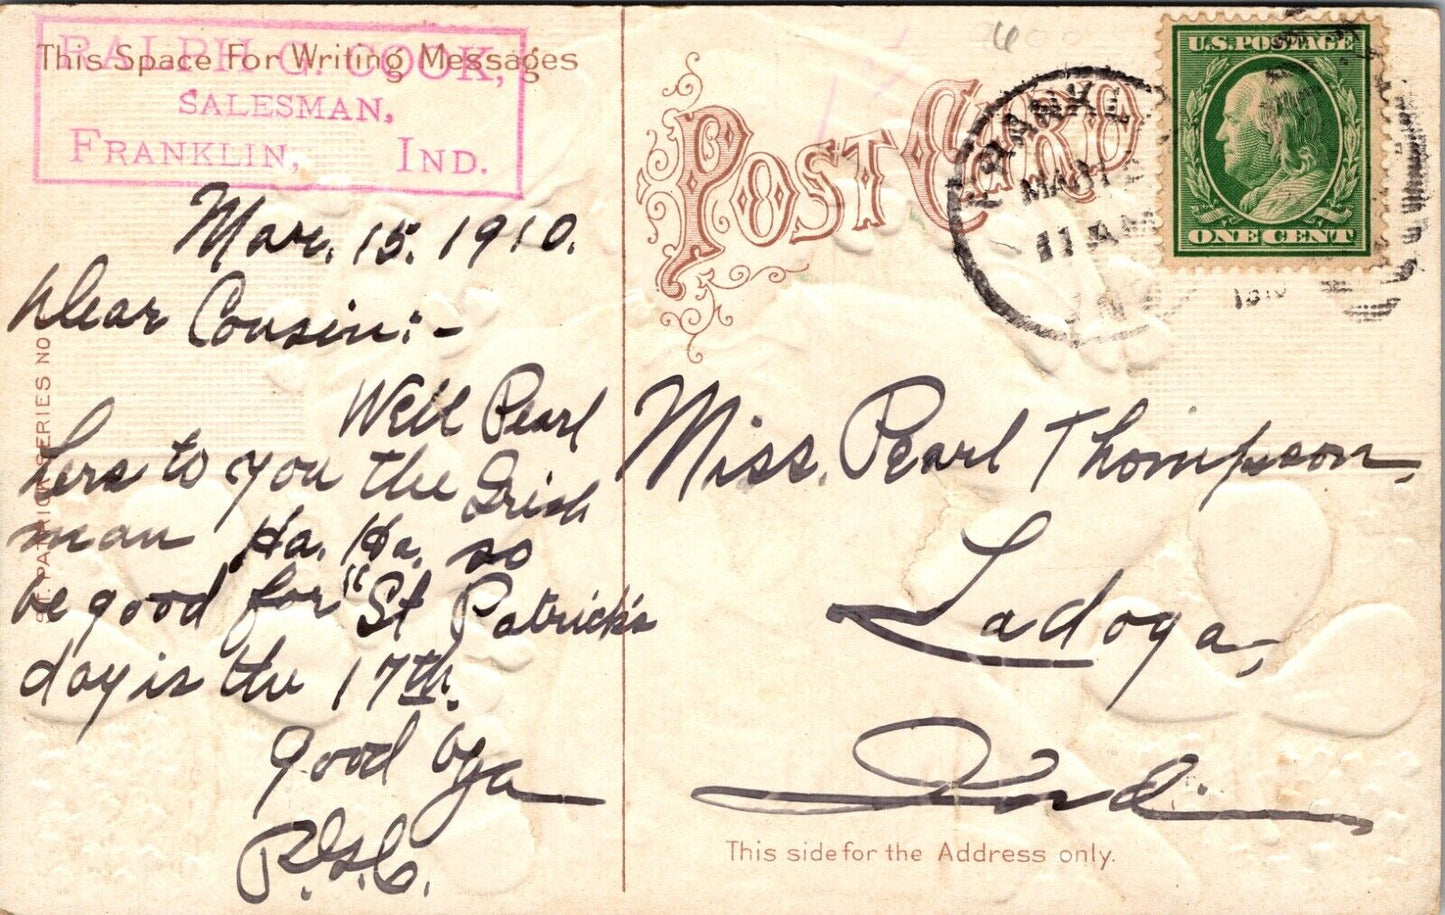 This Space For Writing Messages
RALPH G. COOK,
SALESMAN,
FRANKLIN, IND.
Mar. 15. 1910.
Dear Cousin:-
Well Pearl
hers to you the Irish
man Ha. Ha. so
be good for "St Patrick's
day is the 17th.
Good bya
R.G.C.
ST. PATRICK SERIES NO
POST CARD
FRANKL
11 AM
IND
1910
U.S. POSTAGE
ONE CENT
Miss. Pearl Thompson,
Ladoga,
Ind.
This side for the Address only.